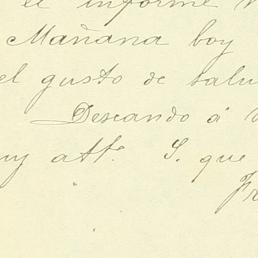 el informe
Mañana boy
el gusto de salu
Deseando á V
uy attº S. que
Fr